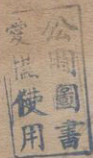 公用圖書
愛惜使用